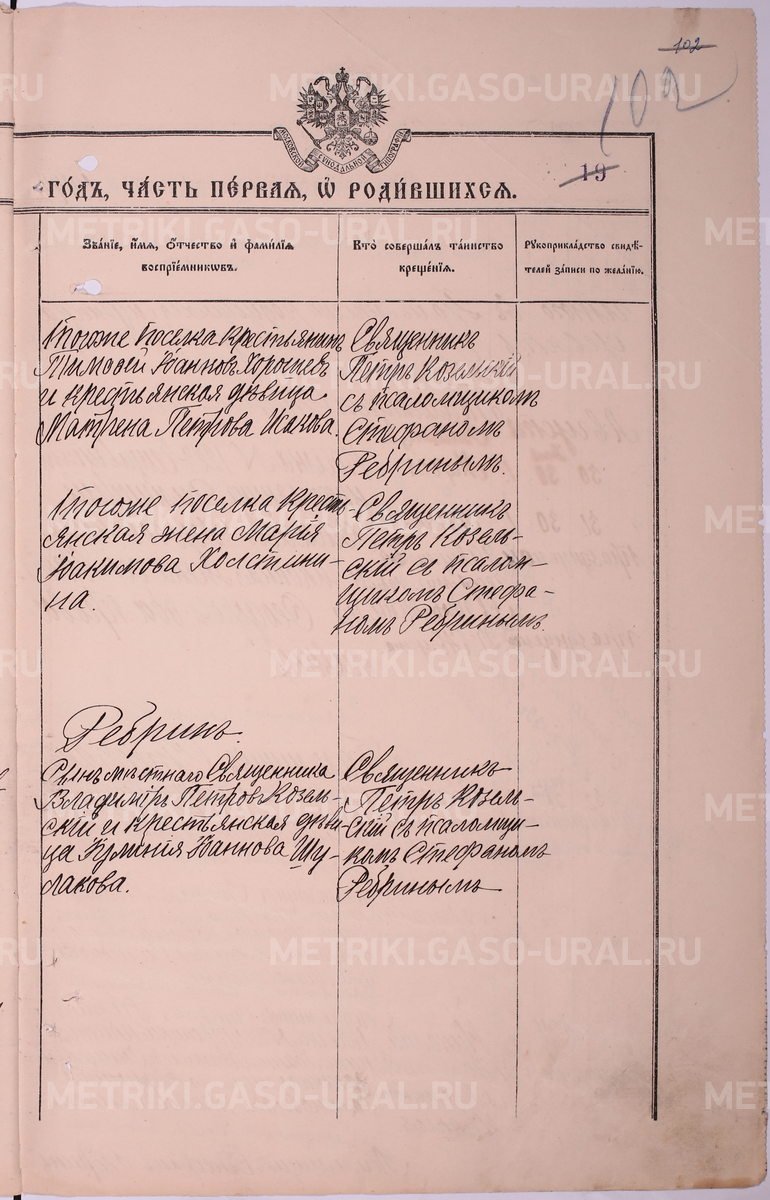 102
102
МОСКОВСКОЙ СѴНОДАЛЬНОЙ ТИПОГРАФІИ
19
ГО́ДЪ, ЧА́СТЬ ПЕ́РВАЯ, Ѽ РОДИ́ВШИХСЯ.
Зва́нїе, и҆́мѧ, ѻ҆́тчество и҆ фами́лїѧ
воспрїе́мникѡвъ.
Кто̀ соверша́лъ та́инство
креще́нїѧ.
Рꙋкоприкла́дство свидѣ́-
телей за́писи по жела́нїю.
Тогоже поселка крестьянинъ
Тимофей Іоанновъ Хорошевъ
и крестьянская дѣвица
Матрена Петрова Исакова.
Священникъ
Петръ Козельскій
съ псаломщикомъ
Стефаномъ
Ребринымъ.
Тогоже поселка кресть-
янская жена Марія
Іакимова Холстини-
на.
Священникъ
Петръ Козель-
скій съ псалом-
щикомъ Стефа-
номъ Ребринымъ.
Ребринъ.
Сынъ мѣстнаго Священника
Владиміръ Петровъ Козель-
скій и крестьянская дѣви-
ца Іоаннова Шу-
лакова.
Священникъ
Петръ Козель-
скій съ псаломщи-
комъ Стефаномъ
Ребринымъ
METRIKI.GASO-URAL.RU